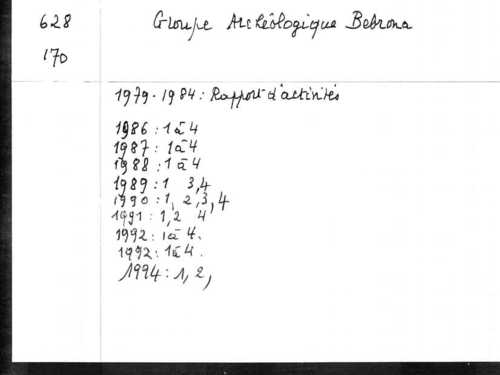 628 Groupe Archéologique Bebrona
170
1979-1984: Rapport d'activités
1986: 1 à 4
1987: 1 à 4
1988: 1 à 4
1989: 1 3,4
1990: 1, 2,3,4
1991: 1,2 4
1992: 1 à 4.
1992: 1 à 4.
1994: 1, 2,